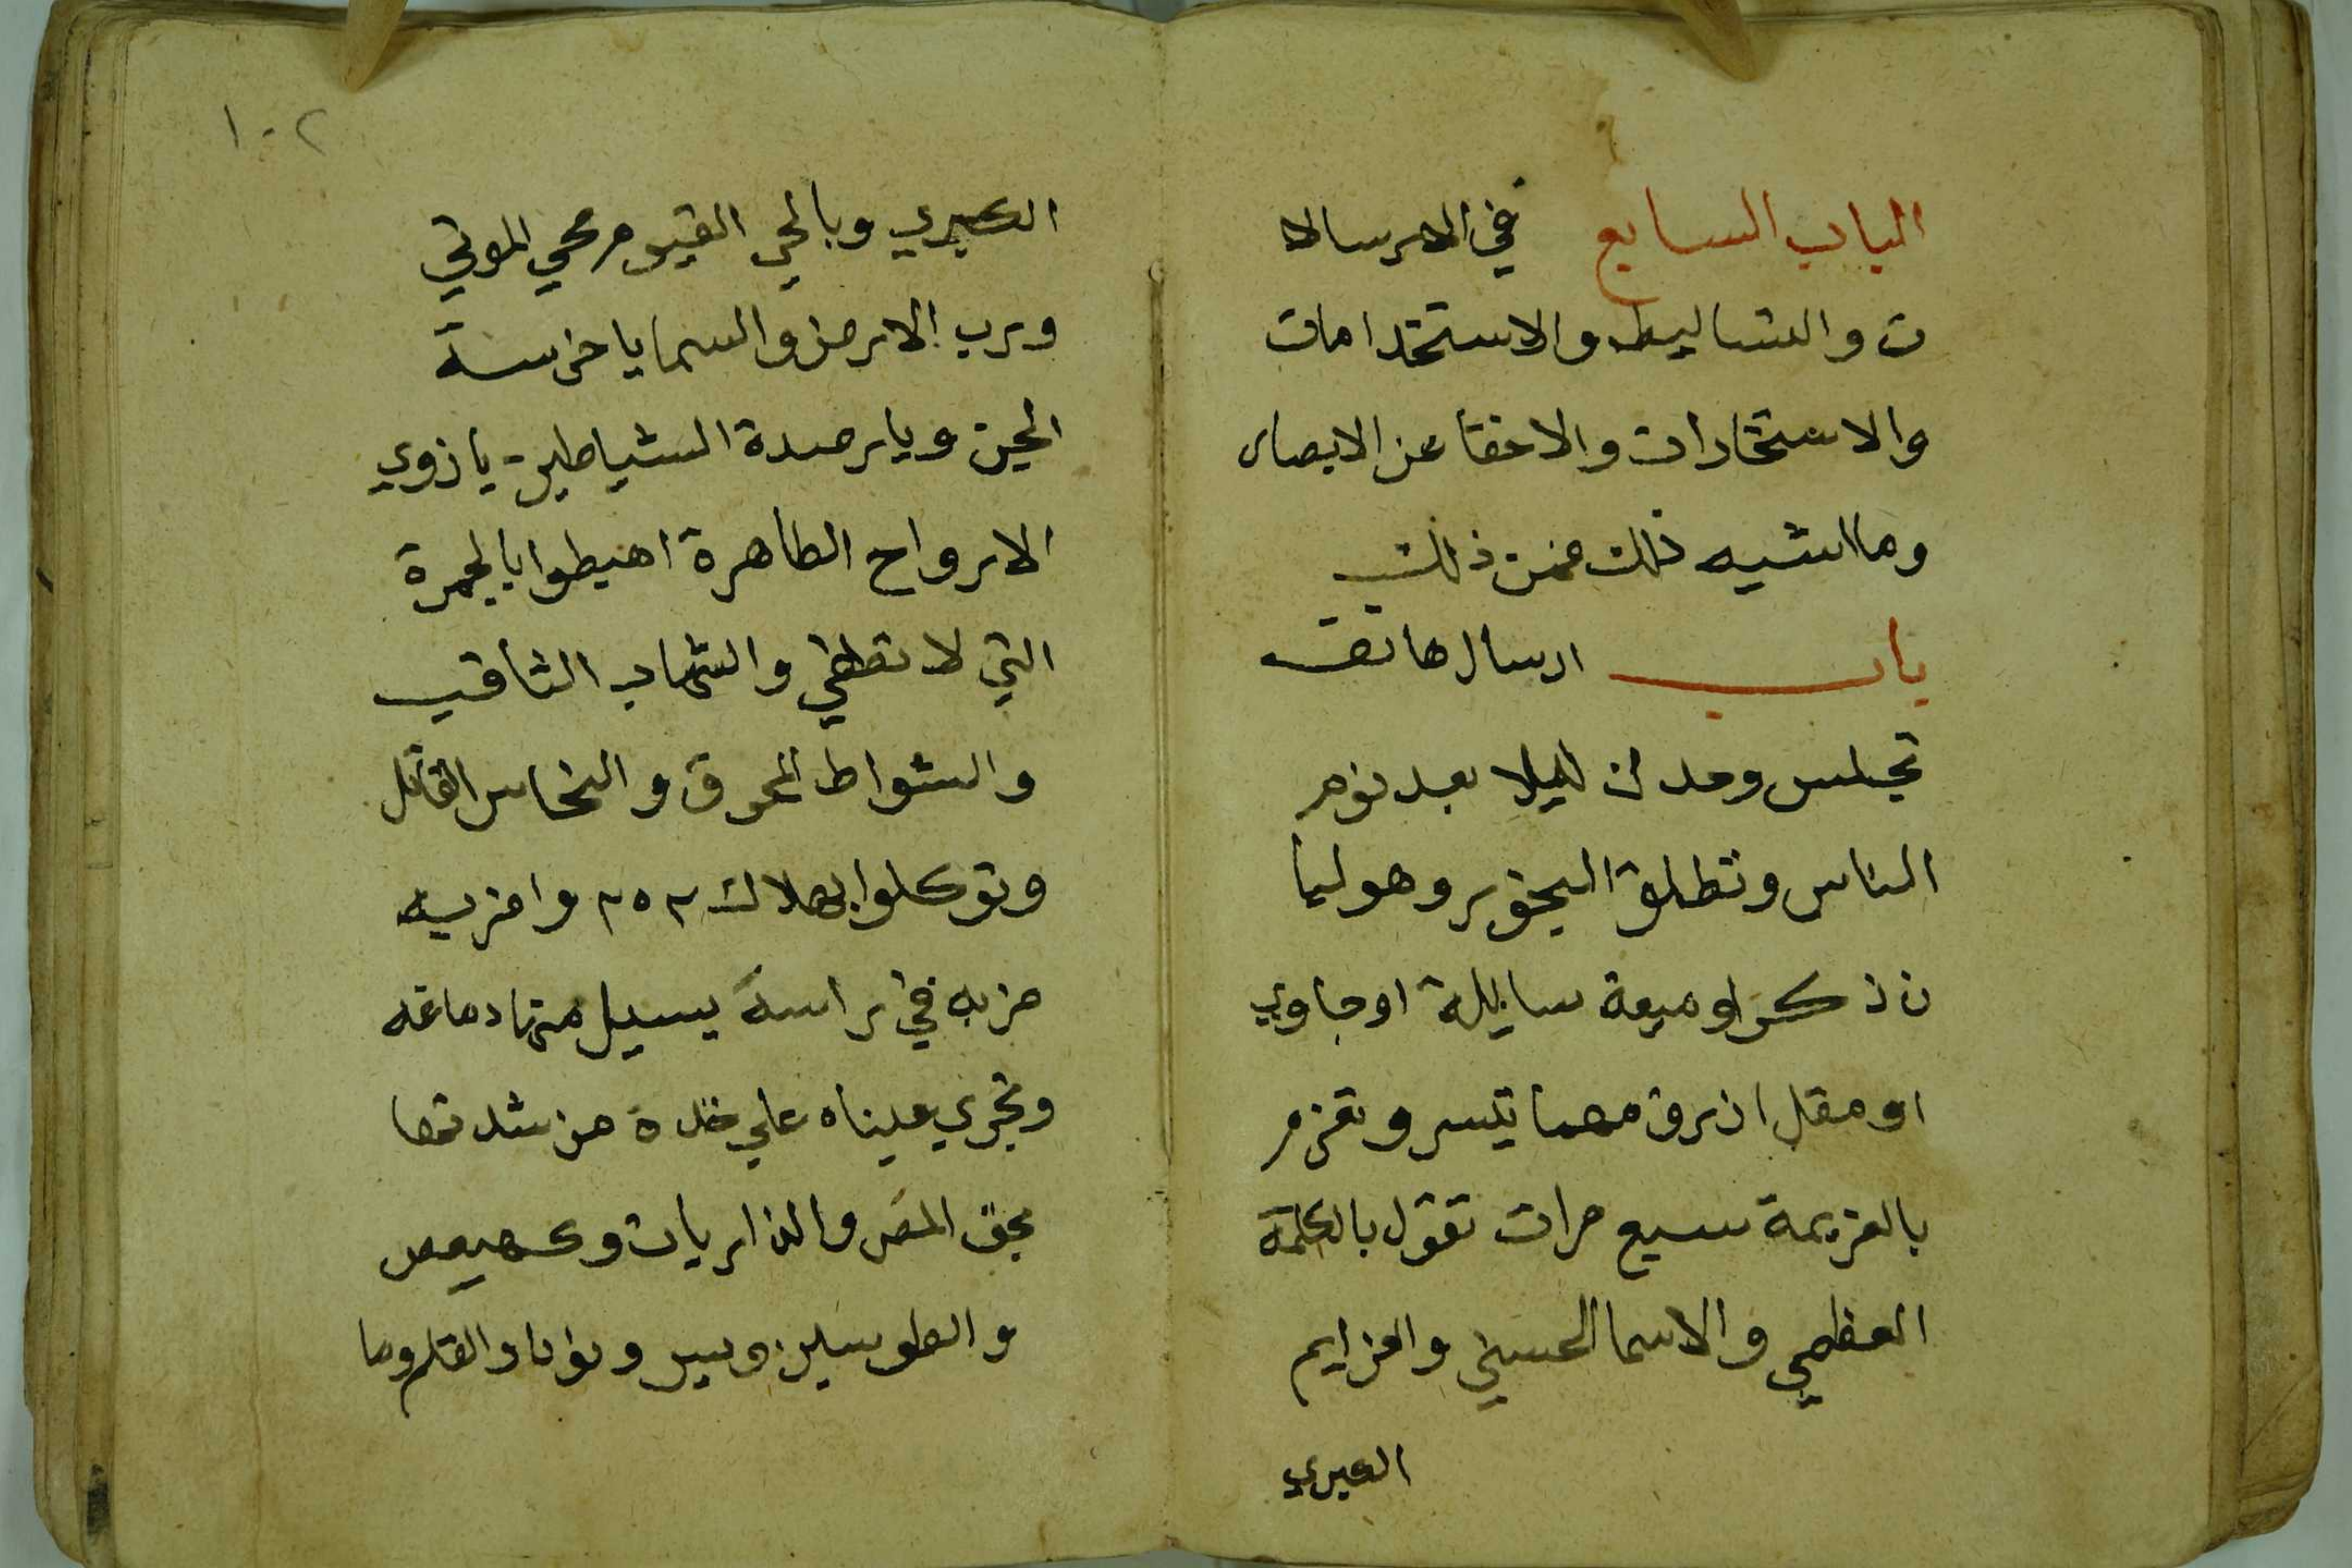 الباب السابع في الارسالا
ت والتساليط والاستخدامات
والاستخارات والاخفا عن الابصار
وما اشبه ذلك فمن ذلك
باب ارسال هاتف
تجلس وحدك ليلا بعد نوم
الناس وتطلق البخور وهو لبا
ن ذكر او ميعة سايلة او جاوي
او مقل ازرق مهما تيسر وتعزم
بالعزيمة سبع مرات تقول بالكلمة
العظمي والاسما الحسني والعزايم
الكبري
١٠٢
الكبري وبالحي القيوم محي الموتي
ورب الارض والسما يا خرسة
الجن ويا رصدة الشياطين يا ذوي
الارواح الطاهرة اهبطوا بالجمرة
التي لا تطفي والشهاب الثاقب
والشواظ المحرق والنحاس القاتل
وتوكلوا بهلاك ٢٥٢ واضربه
ضربه في راسه يسيل منها دماغه
وتجري عيناه علي خده من شدتها
بحق المص والذاريات وكهيعص
والطواسين ويس ون والقلم وما